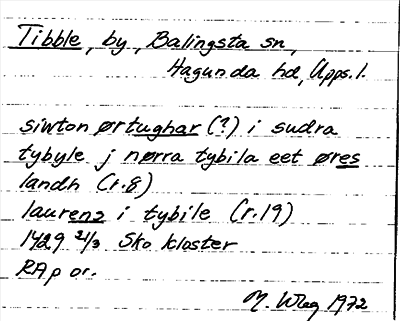 Tibble, by, Balingsta sn,
Hagunda hd, Upps. l.
siwton ørtughar (?) i sudra
tybyle j nørra tybila eet øres
landh (r.8)
laurens i tybile (r.19)
1429 21/3 Sko kloster
RAp or.
M. Wlag 1972